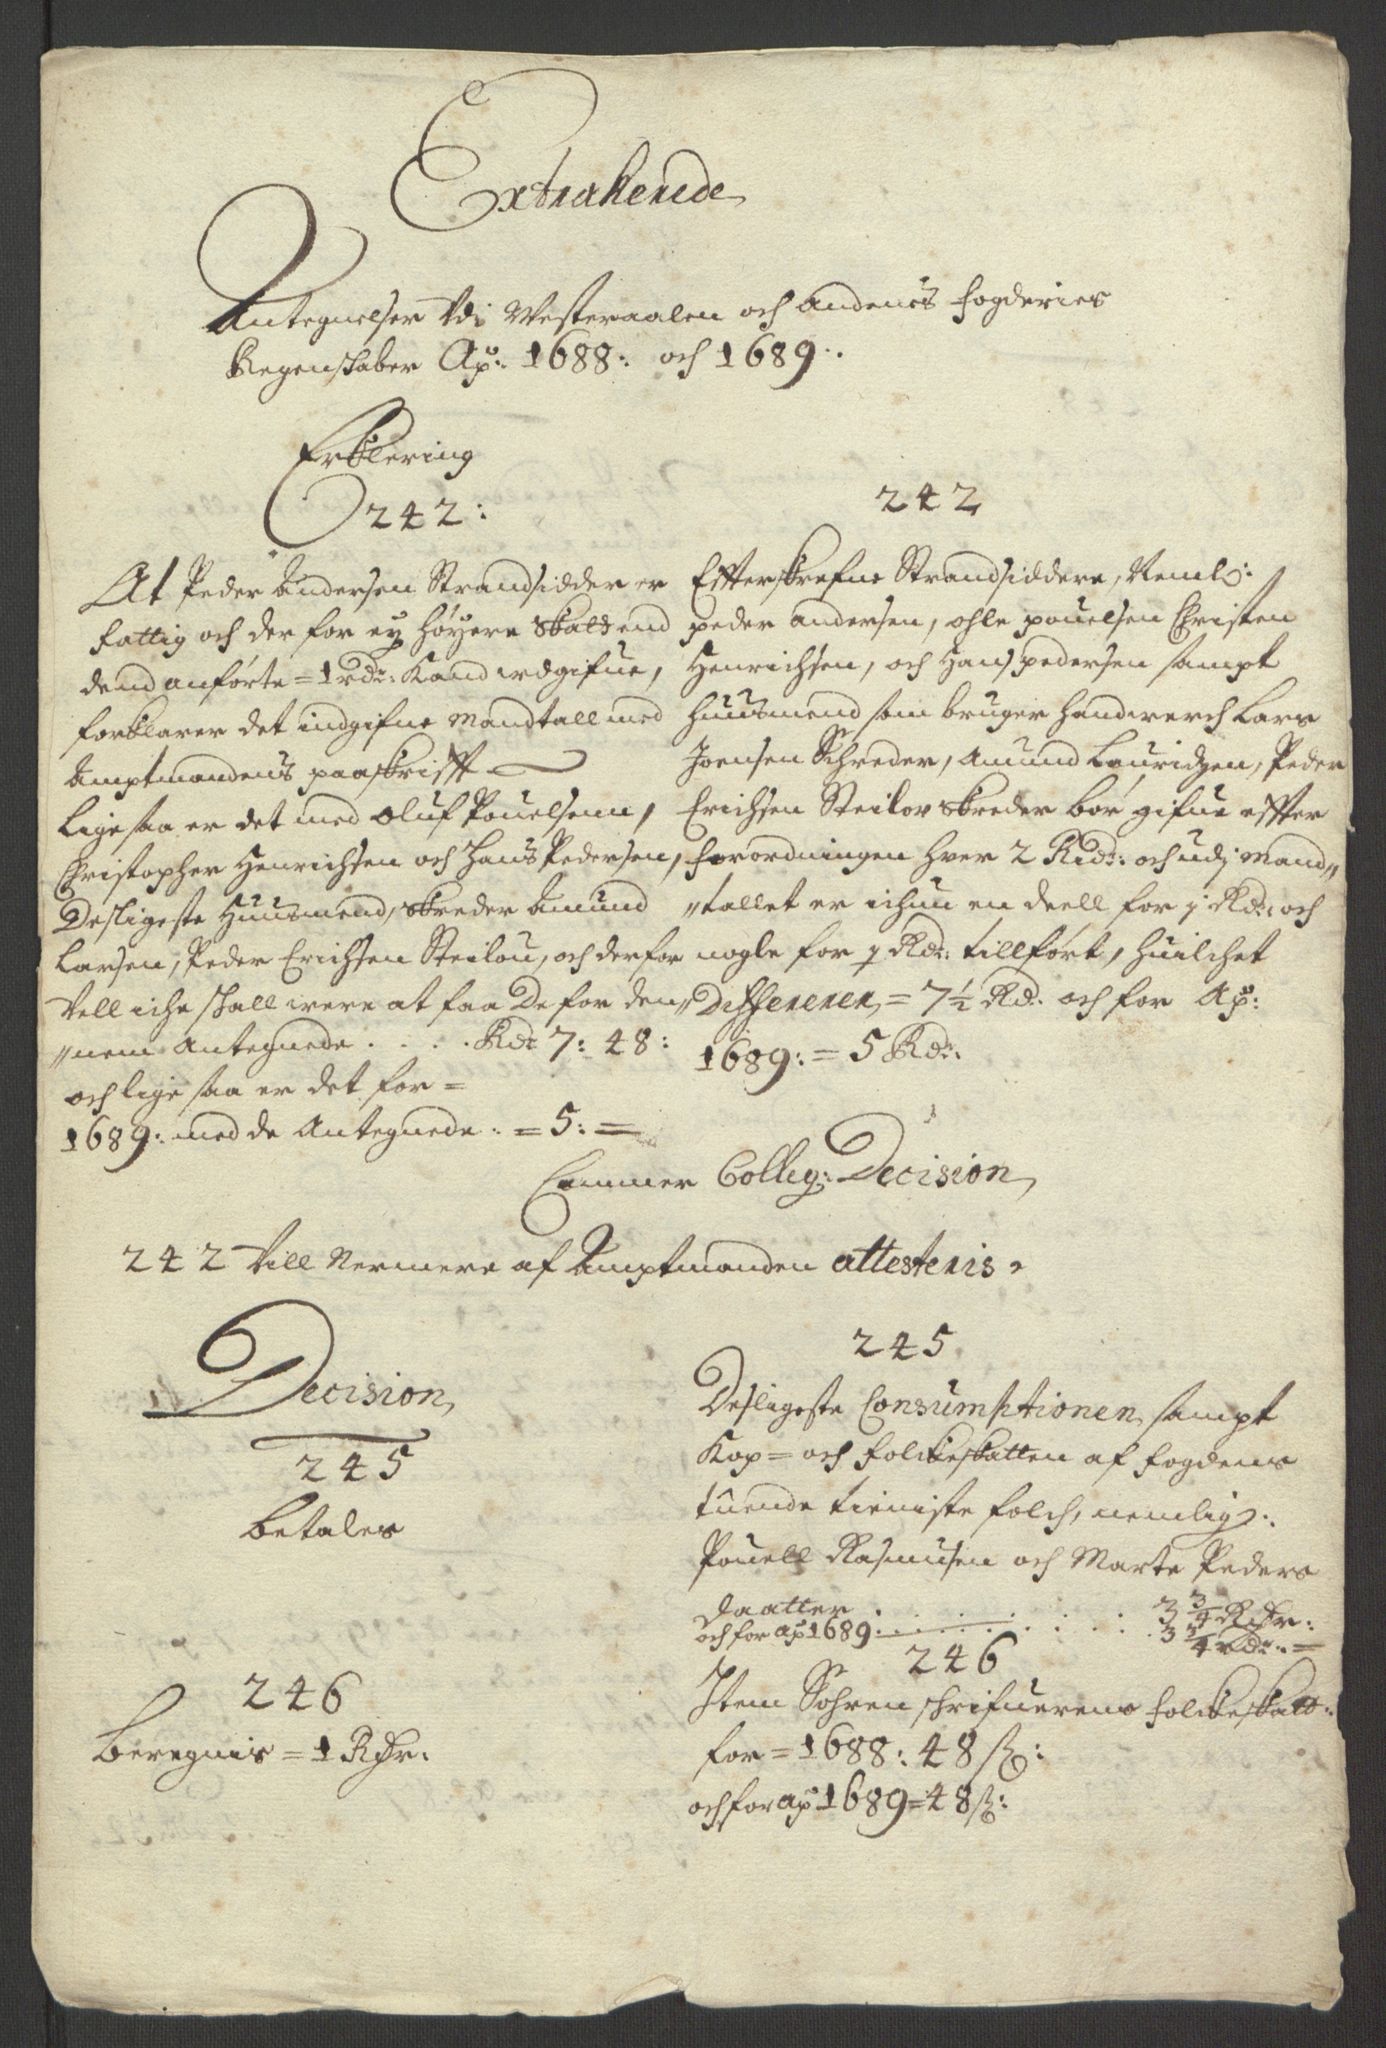 Extraherede
Antegnelser Udj Westeraalen och Andenes fogderies
Regenskaber Ao: 1688: och 1689:.
Erklering
242:
At Peder Andersen Strandsidder er
fattig och der for ey høyere Skatt end
dend anførte = 1 rdr: Kand udgifue,
forklarer det indgifne Mandtall med
Amptmandens paaskrifft
Lige saa er det med Oluf Pouelsenn,
Christopher Henrichsen och Hans Pedersen,
Desligeste Huusmend, skreder Amund
Larsen, Peder Erichsen Steilou, och derfor
Vell iche skall were at faa De for den„
„nem Antegnede . . . . Rdr 7: 48:
och lige saa er det for =
1689: med de Antegnede: = 5: =
242
Effterskrefne Strandsiddere, Neml:
peder andersen, ohle pouelsen Christen
Henrichsen, och Hans pedersen sampt
huusmend som bruger handwerch Lars
Joensen Schreder, Amund Lauridzen, Peder
Erichsen Steilov skreder bør gifue effter
forordningen hver 2 Rdr: och udj Mand„
„tallet er ichun en deell for j Rdr: och
nogle for ꝗ Rdr: tillført, huilchet
Differerer = 7½ Rd: och for Ao:
1689: = 5 Rdr:
Cammer Colleg: Decision
242 Vill Nermere af Amptmanden attesteris.
Decision
245
betales
245
Desligeste Consumptionen sampt
Kop= och folckeskatten af fogdens
tuende tieniste folch, nemlig:
Pouell Rasmusen och Marte Peders
daatter . . . . . . . 3 3/4 Rdr:
och for ao 1689: . . . . . . . 3 3/4 rdr: =
246
beregnis = 1 Rdr:
246
Item Sohrenschrifuerens folckeskatt:
for = 1688: 48 ß:
och for ao 1689 = 48 ß: